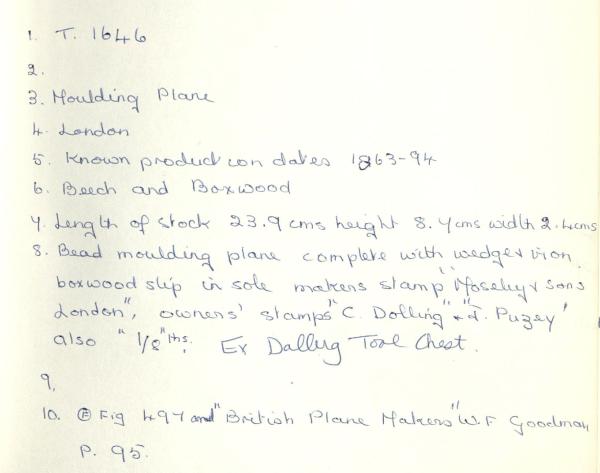 1. T. 1646
2.
3. Moulding Plane
4. London
5. Known production dates 1863-94
6. Beech and Boxwood
7. Length of stock 23.9 cms height 8.7cms width 2.4cms
8. Bead moulding plane complete with wedge & iron
boxwood slip in sole makers stamp "Moseley & Sons
London", owners' stamps "C. Dolling" & "J. Puzey"
also "1/8"ths. Ex Dalling Tool Chest.
9.
10. Ⓔ Fig 497 and "British Plane Makers" W.F Goodman
P. 95.